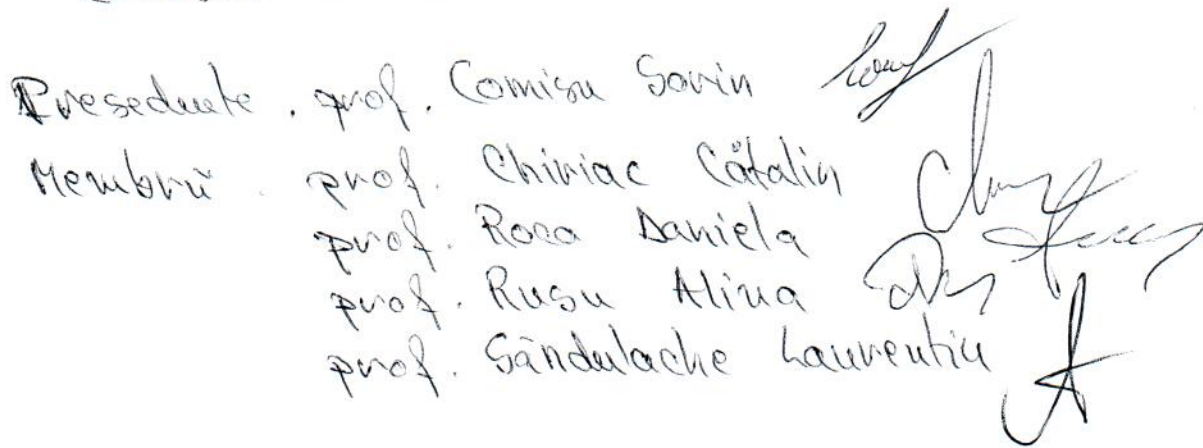 Presedinte. prof. Comisu Sorin
Membrii. prof. Chiriac Cătalin
prof. Roca Daniela
prof. Rusu Alina
prof. Sandulache Laurentiu